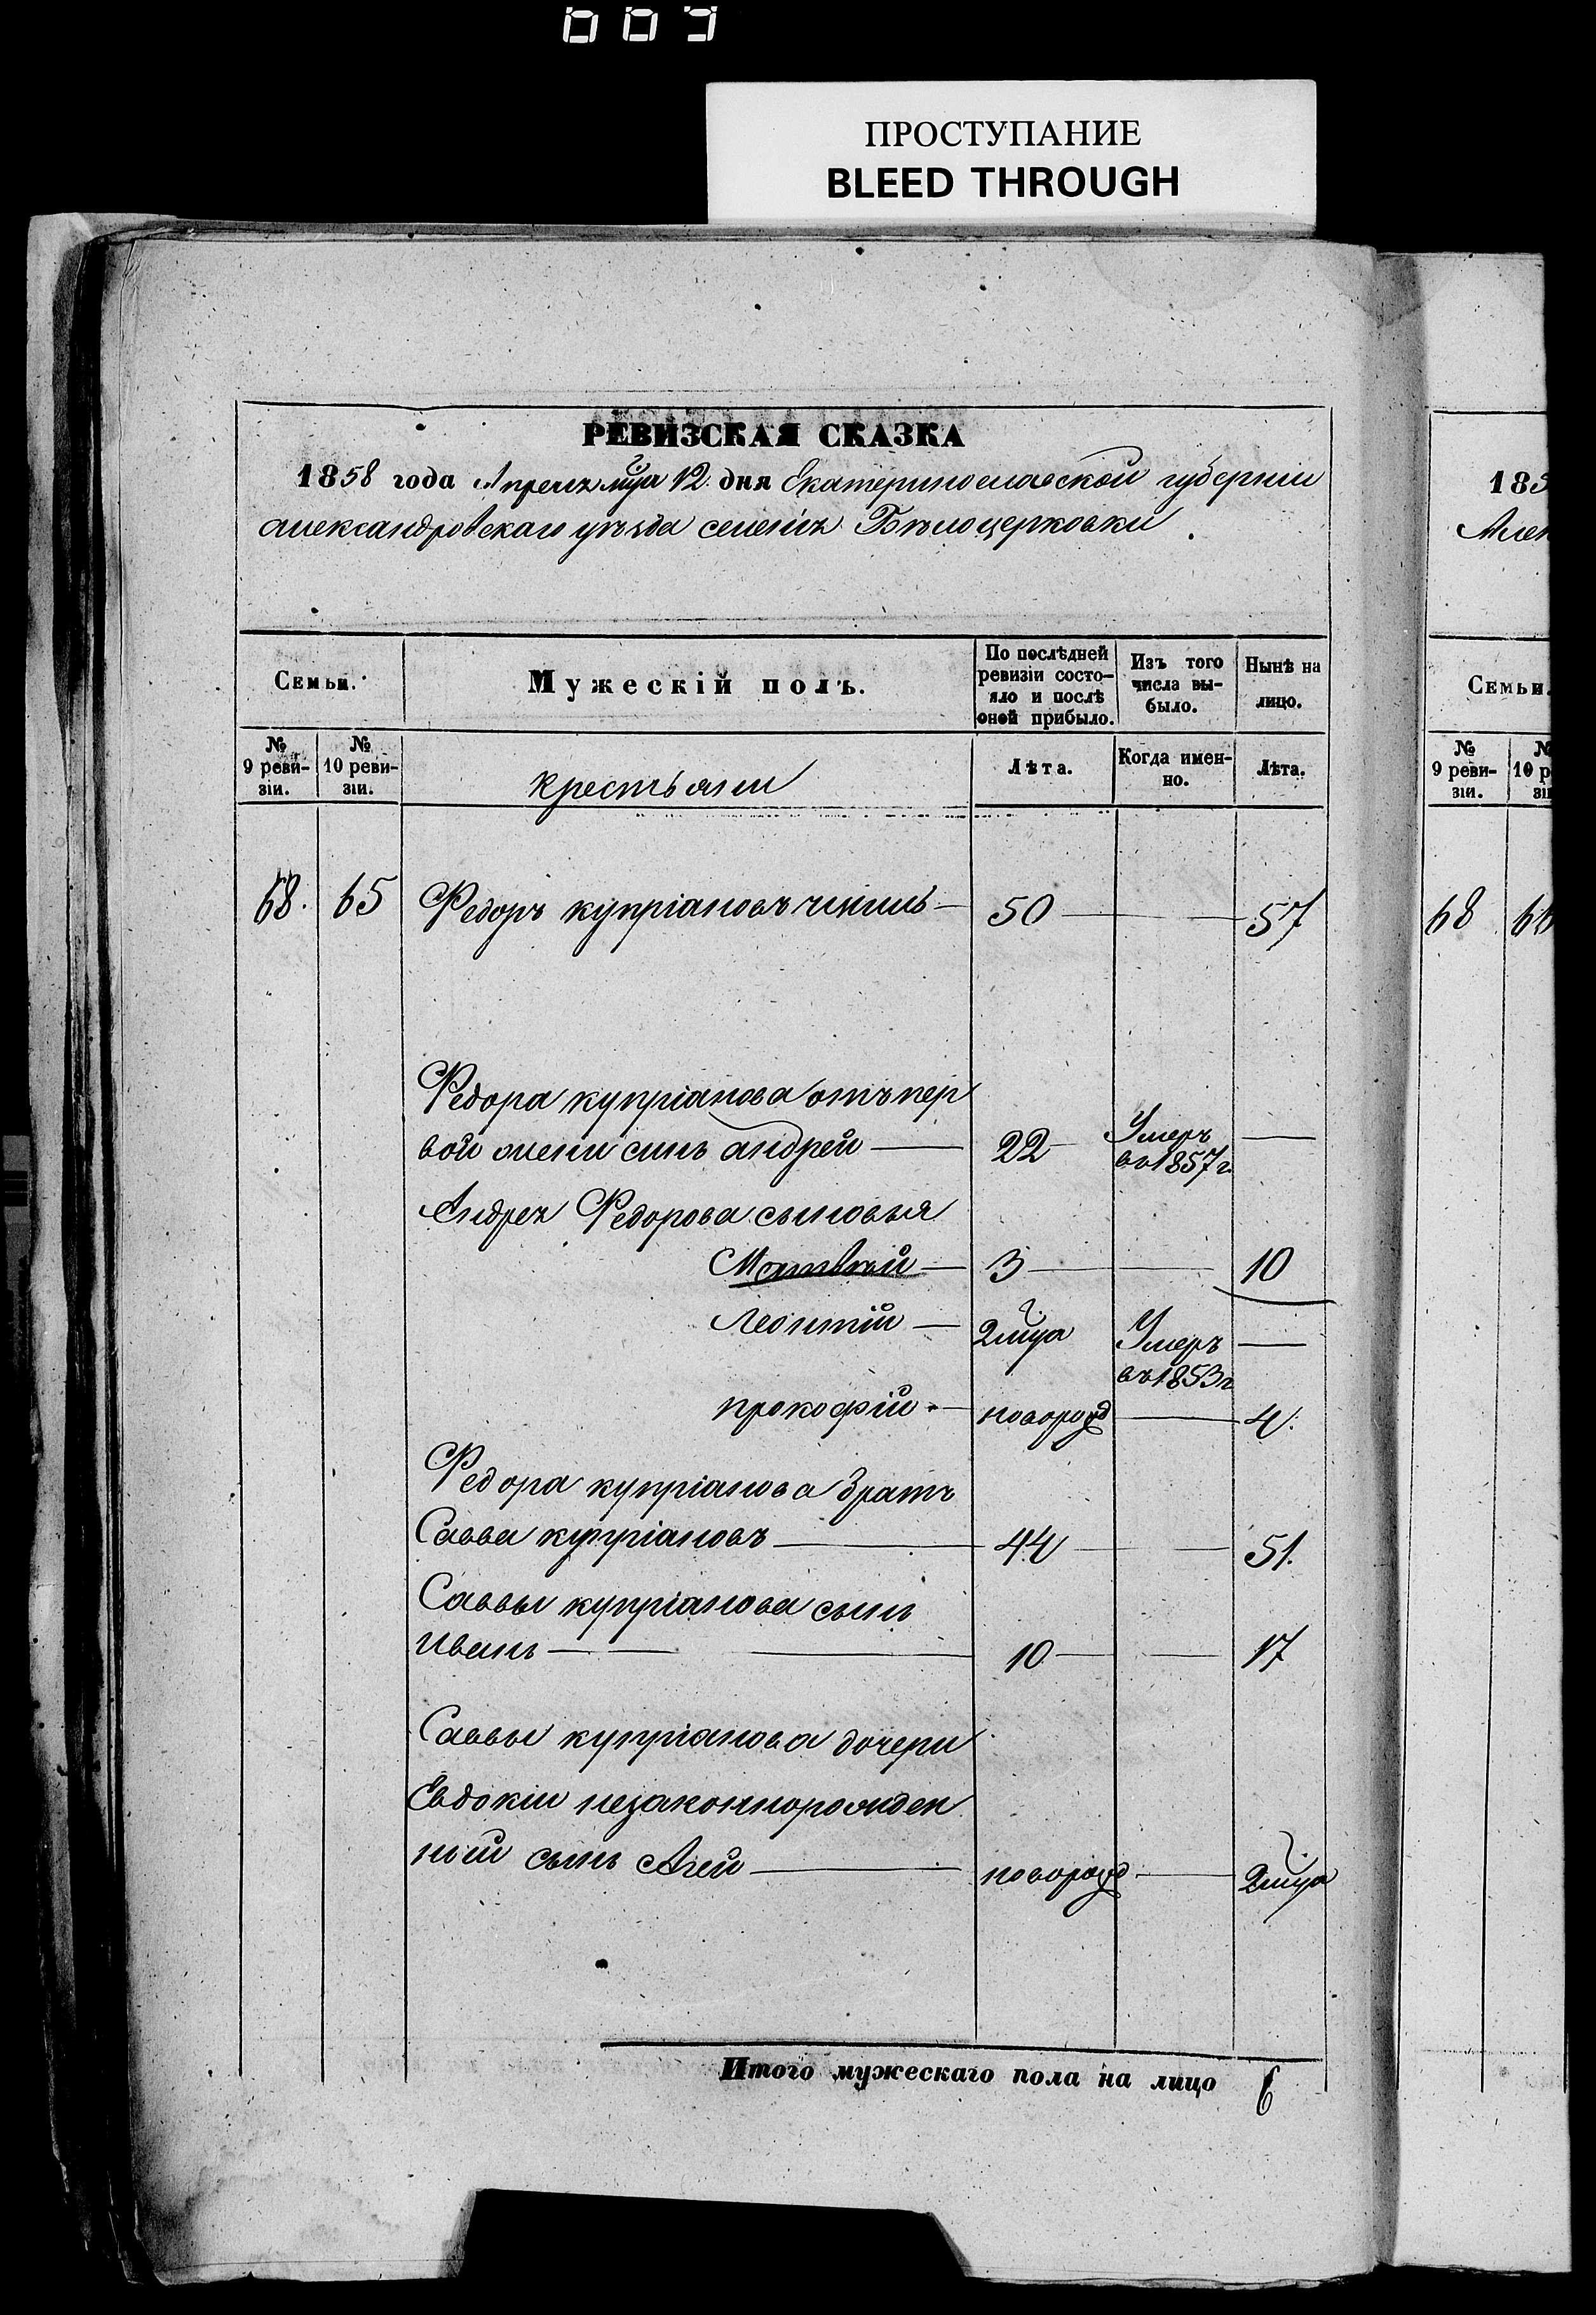 003
ПРОСТУПАНИЕ
BLEED THROUGH
РЕВИЗСКАЯ СКАЗКА
1858 года Апреля мца 12 дня Екатеринославской губерніи
александровскаго уѣзда селенія Бѣлоцерковки
Семьи.
Мужескій полъ.
По послѣдней ревизіи состояло и послѣ оной прибыло.
Изъ того числа выбыло.
Нынѣ на лицо.
№ 9 ревизіи.
№ 10 ревизіи.
крестьяни
Лѣта.
Когда именно.
Лѣта.
68. 65 Федоръ купріановъ 50 57
Федора купріанова отъ пер
вой жени синъ андрей 22 Умеръ въ 1857 г
Андрея Федорова сыновья
Матвѣй 3 10
Леонтій 2 мца Умеръ въ 1853 г
прокофій новорожд 4.
Федора купріанова братъ
Савва купріановъ 44 51.
Саввы купріанова сынъ
Иванъ 10 17
Саввы купріанова дочери
Евдокіи незаконнорожден
ный сынъ Агей новорожд 2 мца
Итого мужескаго пола на лицо 6
185
Ален
Семьи.
№ 9 ревизіи.
№ 10 р
зі
68 66